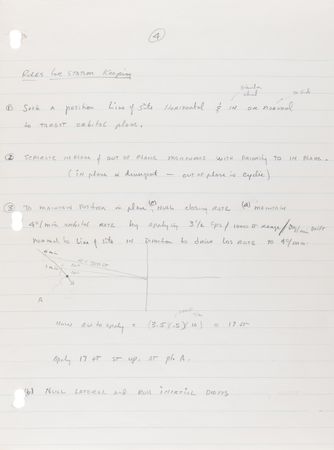 4
RULES for STATION Keeping
similar
① Seek a position Line of Site Horizontal & IN OR NORMAL
to TARGET ORBITAL plane.
② SEPARATE IN PLANE & OUT OF PLANE MANEUVERS WITH PRIORITY TO IN PLANE.
(in plane is divergent — out of plane is cyclic)
③ TO MAINTAIN POSITION in plane Null closing RATE (a) MAINTAIN
4°/min orbital RATE by applying 3½ fps / 1000 ft RANGE / Deg/min Drift
NORMAL to Line of Site IN Direction to drive LOS RATE to 4°/min.
A
How ΔV to apply = (3.5)(.5)(10) = 17 ft
Apply 17 ft st up. at pt. A.
(b) NULL LATERAL and null inertial DRIFTS